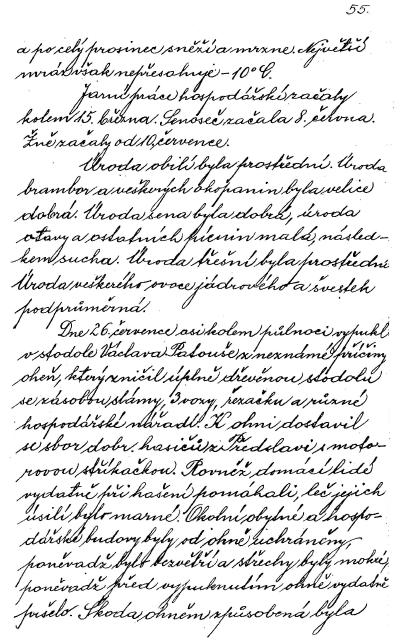 55.
a po celý prosinec sněží a mrzne. Největší
mráz však nepřesahuje -10° C.
Jarní práce hospodářské začaly
kolem 15. března. Senoseč začala 8. června.
Žně začaly od 10. července.
Úroda obilí byla prostřední. Úroda
brambor a veškerých okopanin byla velice
dobrá. Úroda sena byla dobrá, úroda
otavy a ostatních pícnin malá, násled-
kem sucha. Úroda třešní byla prostřední
Úroda veškerého ovoce jádrového a švestek
podprůměrná.
Dne 26. července asi kolem půlnoci vypukl
v stodole Václava Patouše z neznámé příčiny
oheň, který zničil úplně dřevěnou stodolu
se zásobou slámy, 3 vozy, řezačku a různé
hospodářské nářadí. K ohni dostavil
se sbor dobr. hasičů z Předslavi s moto-
rovou stříkačkou. Rovněž domácí lidé
vydatně při hašení pomáhali, leč jejich
úsilí bylo marné. Okolní obytné a hospo-
dářské budovy byly od ohně uchráněny,
poněvadž bylo bezvětří a střechy byly mokré,
poněvadž před vypuknutím ohně vydatně
pršelo. Škoda ohněm způsobená byla